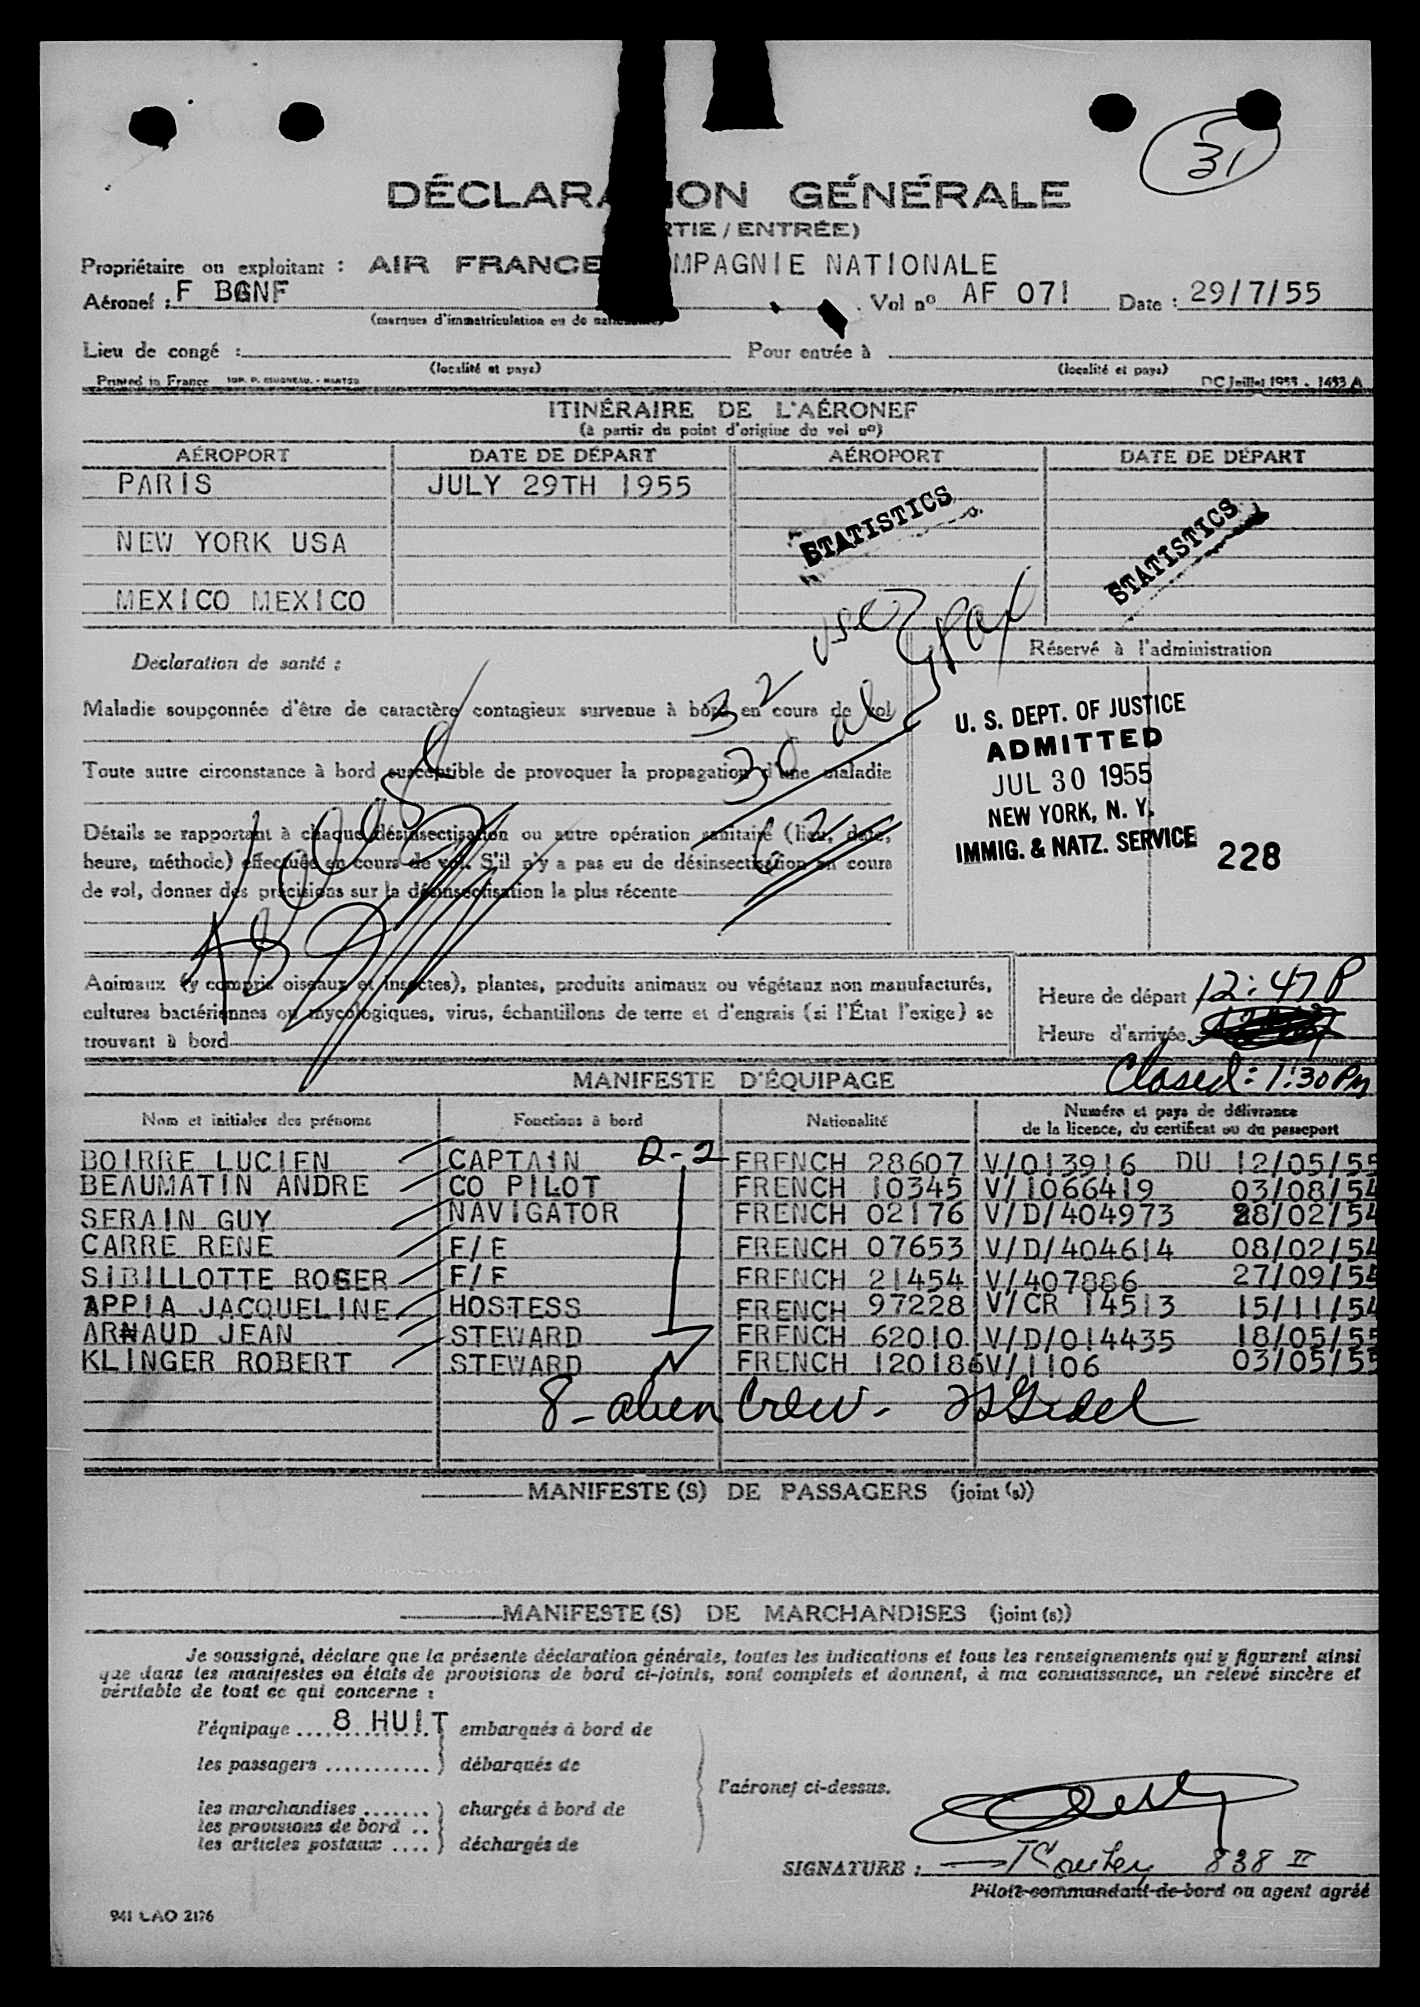 31
DÉCLARA ION GÉNÉRALE
RTIE / ENTRÉE)
Propriétaire ou exploitant : AIR FRANCE MPAGNIE NATIONALE
Aéronef : F BGNF Vol nº AF 071 Date : 29/7/55
(marques d'immatriculation ou de
Lieu de congé : Pour entrée à
(localité et pays) (localité et pays)
Printed in France DC Juillet 1953 - 1453 A
ITINÉRAIRE DE L'AÉRONEF
(à partir du point d'origine du vol nº)
AÉROPORT DATE DE DÉPART AÉROPORT DATE DE DÉPART
PARIS JULY 29TH 1955
STATISTICS STATISTICS
NEW YORK USA
MEXICO MEXICO
32 usc
30 al
62
Déclaration de santé :
Réservé à l'administration
Maladie soupçonnée d'être de caractère contagieux survenue à bord en cours de vol
Toute autre circonstance à bord susceptible de provoquer la propagation d'une maladie
Détails se rapportant à chaque désinsectisation ou autre opération sanitaire (lieu, date,
heure, méthode) effectuée en cours de vol. S'il n'y a pas eu de désinsectisation en cours
de vol, donner des précisions sur la désinsectisation la plus récente
U. S. DEPT. OF JUSTICE
ADMITTED
JUL 30 1955
NEW YORK, N. Y.
IMMIG. & NATZ. SERVICE 228
Animaux (y compris oiseaux et insectes), plantes, produits animaux ou végétaux non manufacturés,
cultures bactériennes ou mycologiques, virus, échantillons de terre et d'engrais (si l'État l'exige) se
trouvant à bord
Heure de départ 12:47 P
Heure d'arrivée
Closed: 1:30 PM
MANIFESTE D'ÉQUIPAGE
Nom et initiales des prénoms Fonctions à bord Nationalité Numéro et pays de délivrance
de la licence, du certificat ou du passeport
D-2
BOIRRE LUCIEN CAPTAIN FRENCH 28607 V/013916 DU 12/05/55
BEAUMATIN ANDRE CO PILOT FRENCH 10345 V/1066419 03/08/54
SERAIN GUY NAVIGATOR FRENCH 02176 V/D/404973 28/02/54
CARRE RENE F/E FRENCH 07653 V/D/404614 08/02/54
SIBILLOTTE ROGER F/E FRENCH 21454 V/407886 27/09/54
APPIA JACQUELINE HOSTESS FRENCH 97228 V/CR 14513 15/11/54
ARNAUD JEAN STEWARD FRENCH 62010 V/D/014435 18/05/55
KLINGER ROBERT STEWARD FRENCH 120186 V/1106 03/05/55
8 - alien Crew -
MANIFESTE (S) DE PASSAGERS (joint (s))
MANIFESTE (S) DE MARCHANDISES (joint (s))
Je soussigné, déclare que la présente déclaration générale, toutes les indications et tous les renseignements qui y figurent ainsi
que dans les manifestes ou états de provisions de bord ci-joints, sont complets et donnent, à ma connaissance, un relevé sincère et
véritable de tout ce qui concerne :
l'équipage .... 8 HUIT embarqués à bord de
les passagers ........... débarqués de
l'aéronef ci-dessus.
les marchandises ....... chargés à bord de
les provisions de bord ..
les articles postaux .... déchargés de
SIGNATURE : 838 II
Pilote commandant de bord ou agent agréé
941 CAO 2176